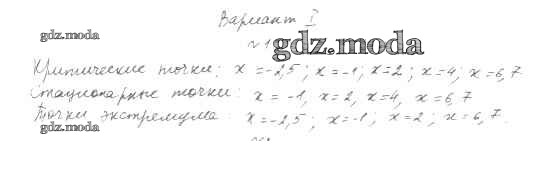 Вариант I
gdz.moda
№1
gdz.moda
Критические точки: x = -2,5; x = -1; x = 2; x = 4; x = 6,7
Стационарные точки: x = -1, x = 2, x = 4, x = 6,7
Точки экстремума: x = -2,5; x = -1; x = 2; x = 6,7.
gdz.moda